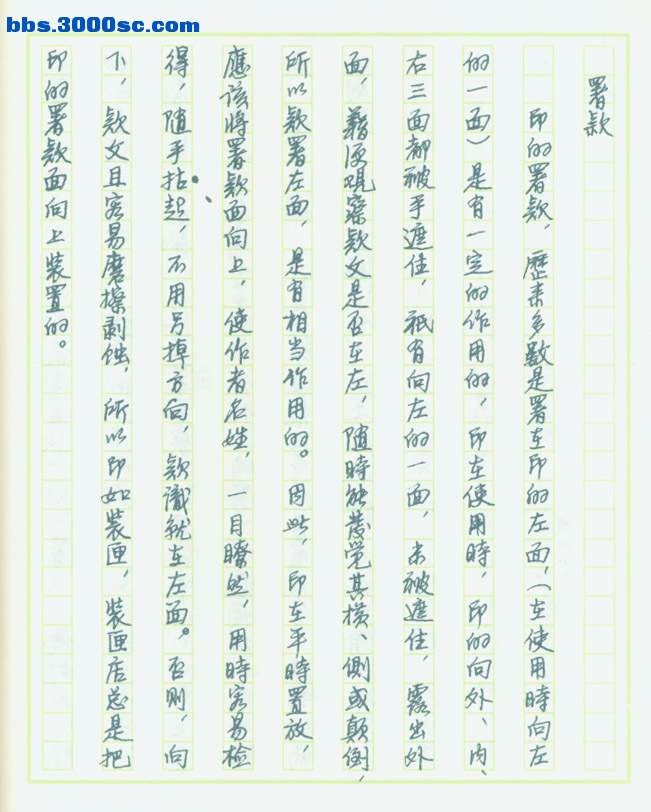 bbs.3000sc.com
署款
印的署款，歷来多数是署在印的左面，（在使用時向左
的一面）是有一定的作用的，印在使用時，印的向外、内、
右三面都被手遮住，祇有向左的一面，未被遮住，露出外
面，藉便观察款文是否在左，随時能發觉其横、側或颠倒，
所以款署左面，是有相当作用的。因此，印在平時置放，
應该將署款面向上，使作者名姓，一目瞭然，用時容易检
得，随手拈起，不用另掉方向，款識就在左面。否则，向
下，款文且容易磨擦剥蚀，所以印如装匣，装匣店总是把
印的署款面向上装置的。